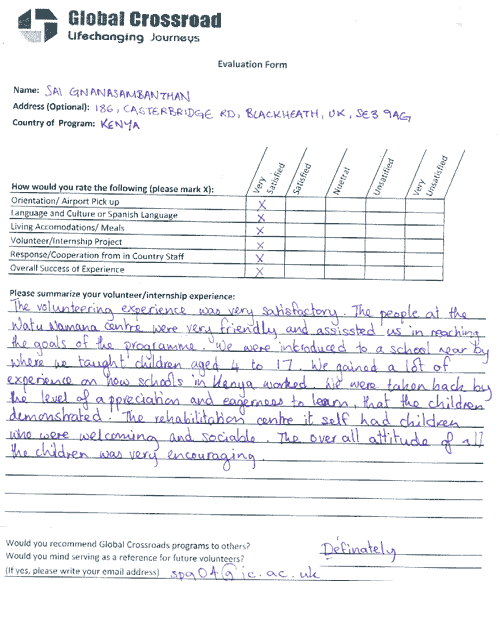 Global Crossroad
Lifechanging Journeys
Evaluation Form
Name: SAI GNANASAMBANTHAN
Address (Optional): 186, CASTERBRIDGE RD, BLACKHEATH, UK, SE3 9AG
Country of Program: KENYA
How would you rate the following (please mark X):
Very Satisfied
Satisfied
Nuetral
Unsatisfied
Very Unsatisfied
Orientation/ Airport Pick up X
Language and Culture or Spanish Language X
Living Accomodations/ Meals X
Volunteer/Internship Project X
Response/Cooperation from in Country Staff X
Overall Success of Experience X
Please summarize your volunteer/internship experience:
The volunteering experience was very satisfactory. The people at the
Watu Wamana Centre were very friendly and assissted us in reaching
the goals of the programme. We were introduced to a school near by
where we taught children aged 4 to 17. We gained a lot of
experience on how schools in Kenya worked. We were taken back by
the level of appreciation and eagerness to learn, that the children
demonstrated. The rehabilitation centre it self had children
who were welcoming and sociable. The over all attitude of all
the children was very encouraging.
Would you recommend Global Crossroads programs to others? Definately
Would you mind serving as a reference for future volunteers?
(If yes, please write your email address) spg04@ic.ac.uk